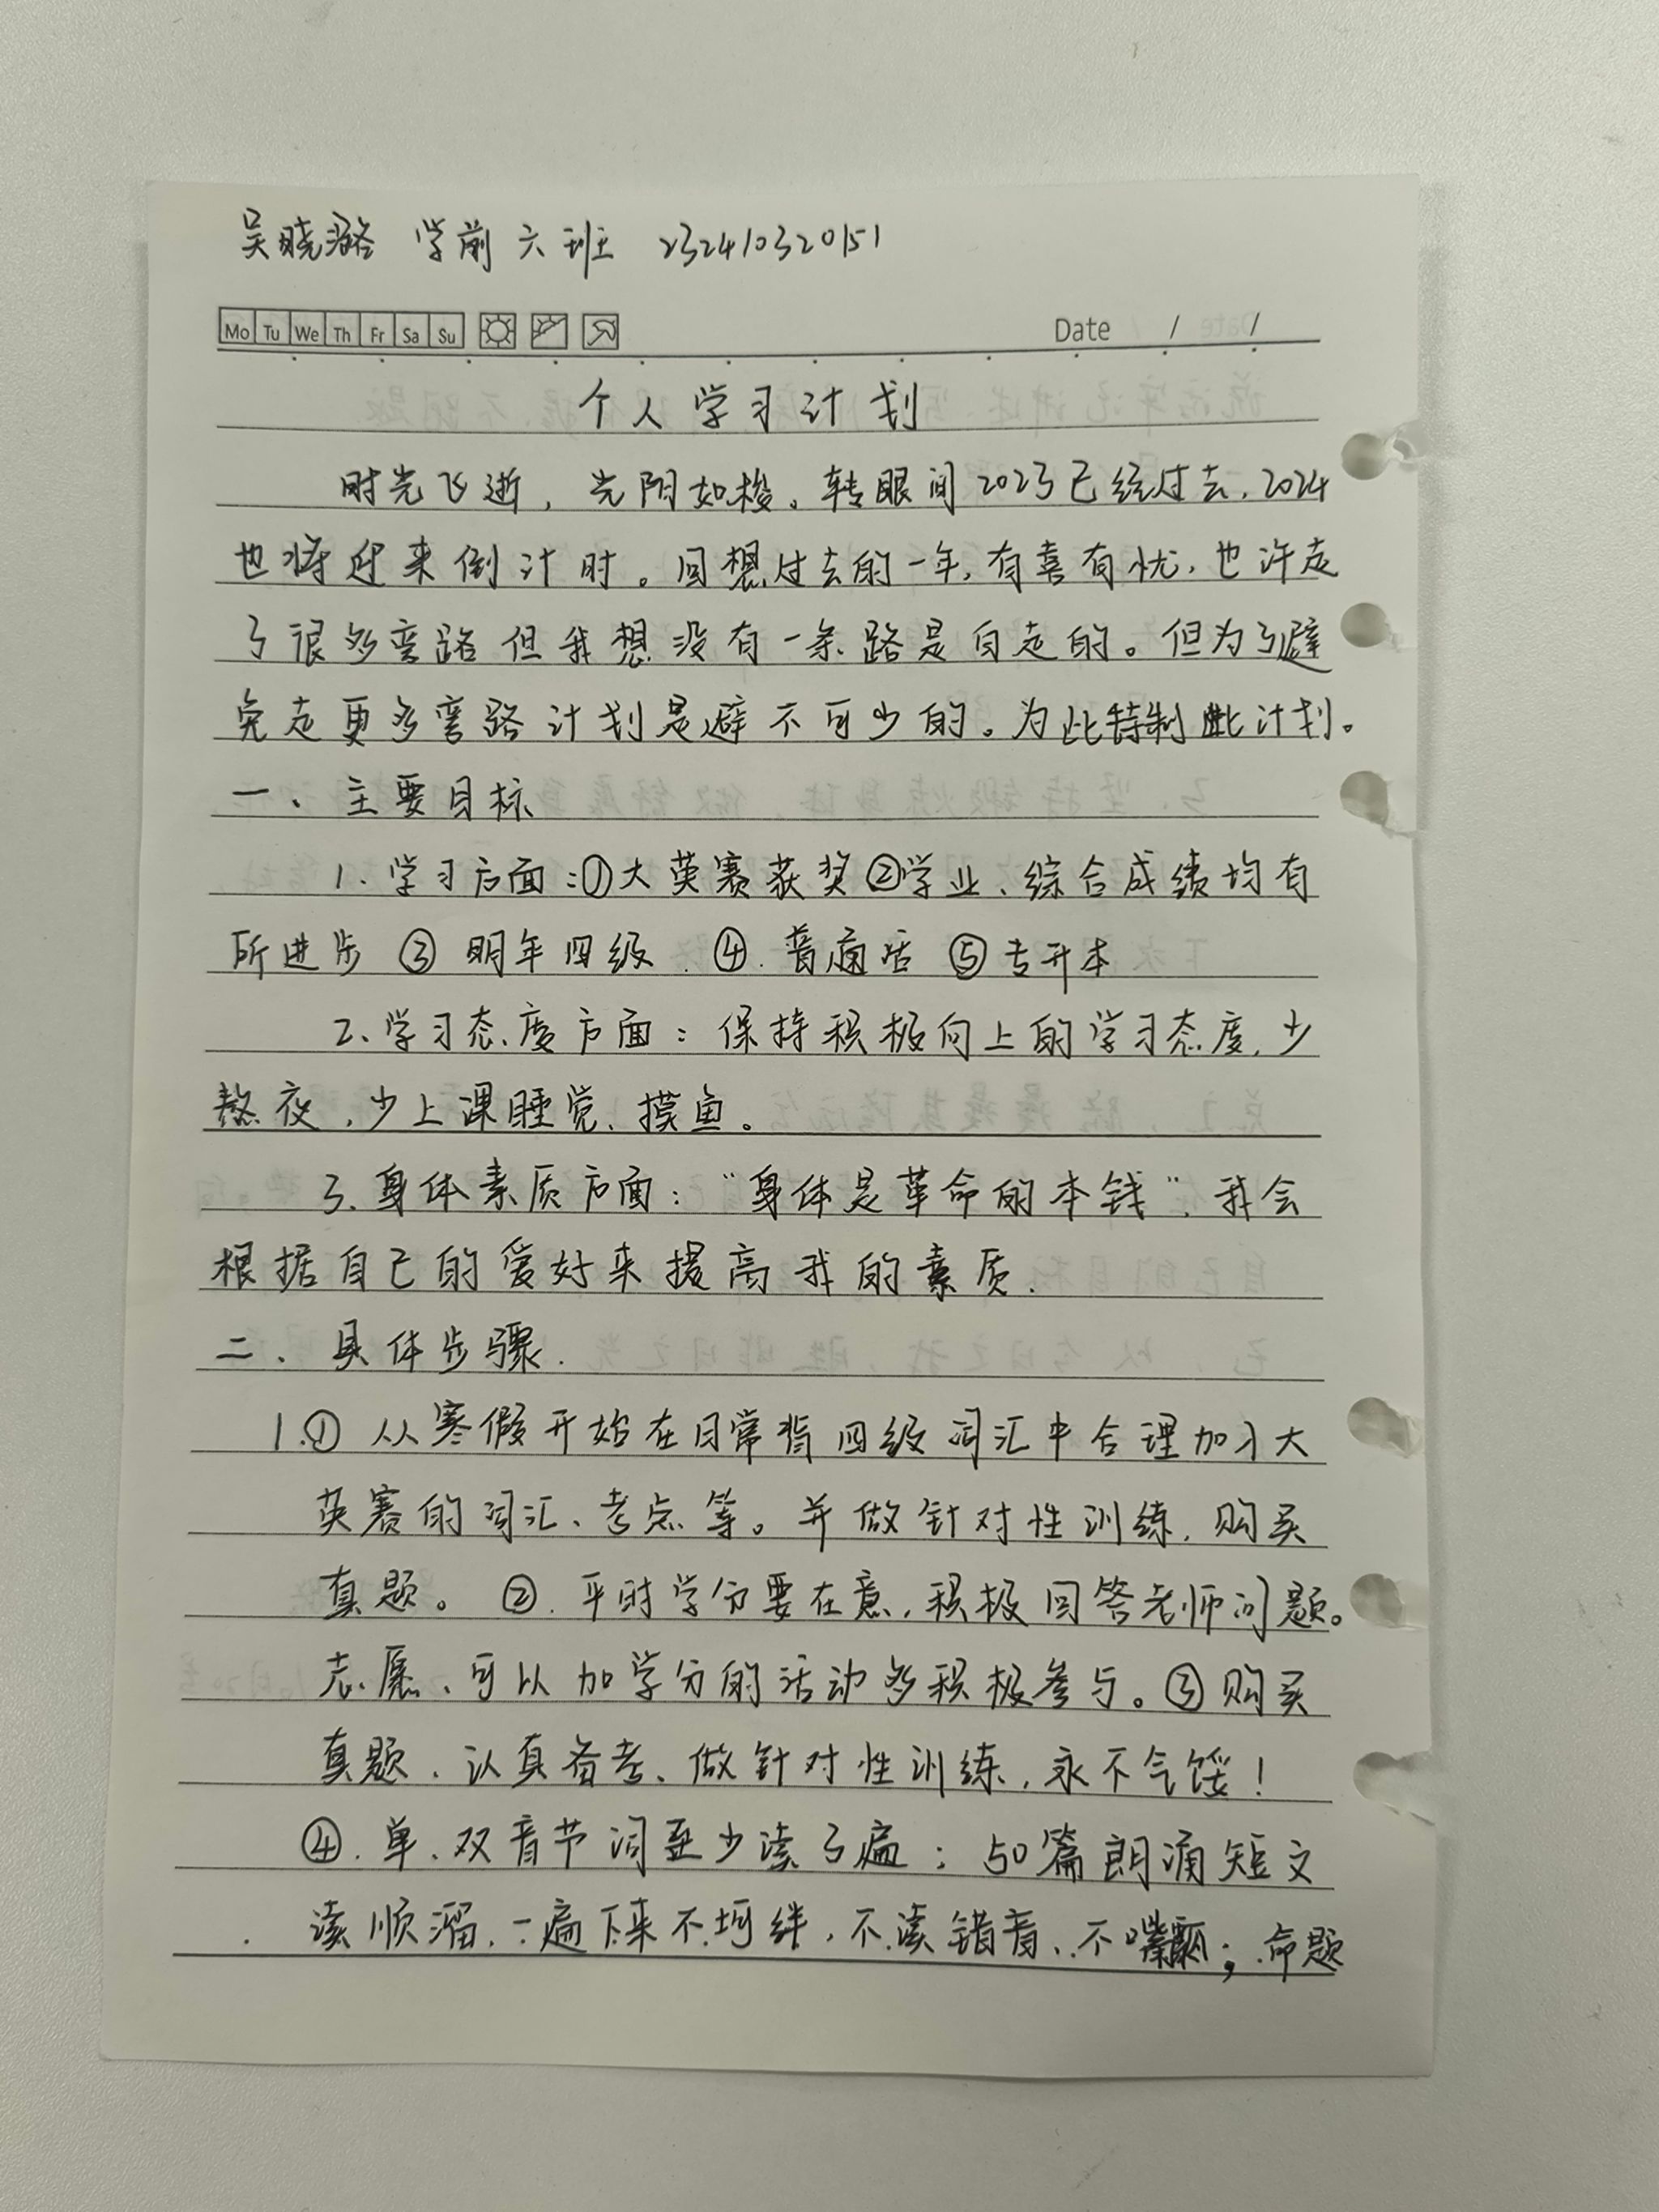 吴晓璐 学前六班 232410320151
Mo Tu We Th Fr Sa Su Date / /
个人学习计划
时光飞逝，光阴如梭。转眼间2023已经过去，2024
也将迎来倒计时。回想过去的一年，有喜有忧，也许走
了很多弯路但我想没有一条路是白走的。但为了避
免走更多弯路计划是避不可少的。为此特制此计划。
一、主要目标
1.学习方面：①大英赛获奖②学业、综合成绩均有
所进步 ③ 明年四级. ④.普通话 ⑤专升本
2、学习态度方面：保持积极向上的学习态度，少
熬夜，少上课睡觉、摸鱼。
3.身体素质方面：“身体是革命的本钱”，我会
根据自己的爱好来提高我的素质.
二、具体步骤.
1.① 从寒假开始在日常背四级词汇中合理加入大
英赛的词汇、考点等。并做针对性训练，购买
真题。 ②.平时学分要在意，积极回答老师问题。
志愿、可以加学分的活动多积极参与。③购买
真题、认真备考、做针对性训练，永不气馁！
④.单、双音节词至少读3遍；50篇朗诵短文
读顺溜，一遍下来不坷绊，不读错音、不嘴瓢；命题